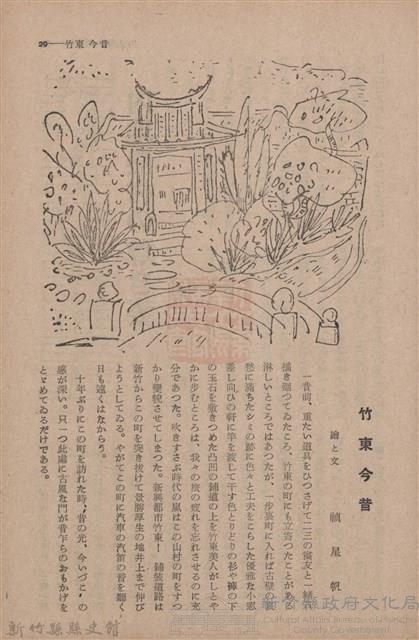 29——竹東今昔
竹東今昔
繪と文　禎星帆
一昔前、重たい道具をひつさげて二三の黨友と一緒に
描き廻つてゐたころ、竹東の町にも立寄つたことがある。
淋しいところではあつたが、一步裏町に入れば古壁の
愁に滿ちたシミの跡に色々と工夫をこらした優雅な小窓、
差し向ひの軒に竿を渡して干す色とりどりの衫や褲の下
の玉石を敷きつめた凸凹の鋪道の上を竹東美人がしとや
かに步むところは、我々の旅の疲れを忘れさせるのに充
分であつた。吹きすさぶ時代の嵐はこの山村の町をすつ
かり變貌させてしまつた。新興都市竹東！　鋪裝道路は
新竹からこの町を突き拔けて景勝厚生の地井上まで伸び
ようとしてゐる。やがてこの町に汽車の汽笛の音を聽く
日も遠くはなからう。
十年ぶりにこの町を訪れた時、昔の元、今いづこ、の
感が深い。只一つ此處に古風な門が昔乍らのおもかげを
とどめてゐるだけである。
新竹縣政府文化局
Cultural Affairs Bureau of Hsinchu
County Government
新竹縣縣史館